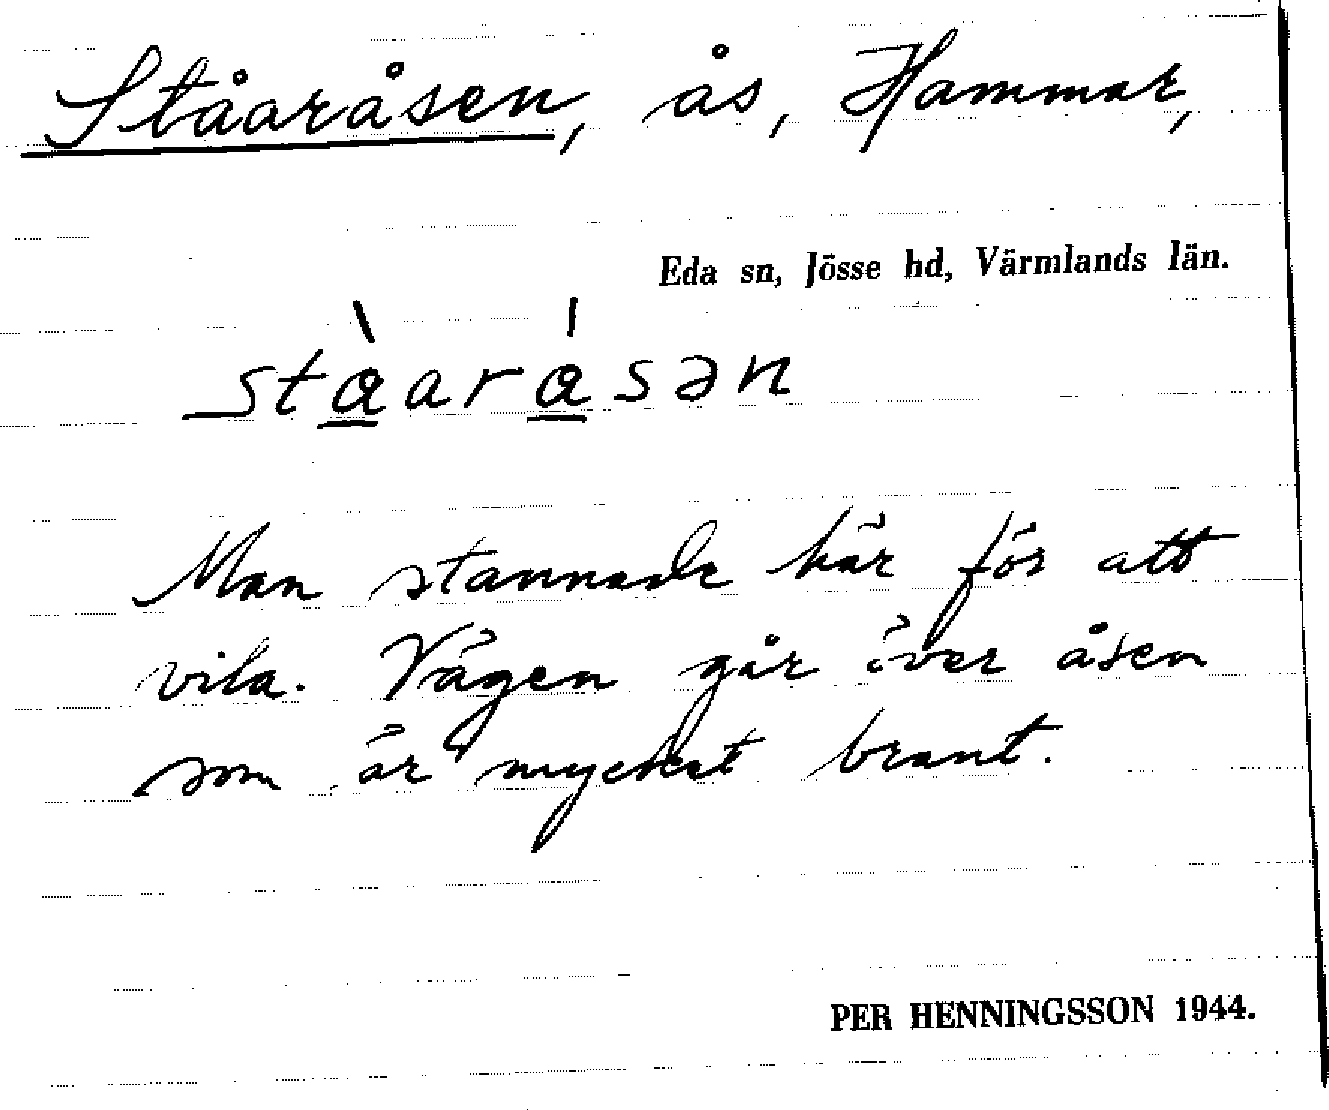 Ståaråsen, ås, Hammar,
Eda sn, Jösse hd, Värmlands län.
stàaråsən
Man stannade här för att
vila. Vägen går över åsen
som är mycket brant.
PER HENNINGSSON 1944.